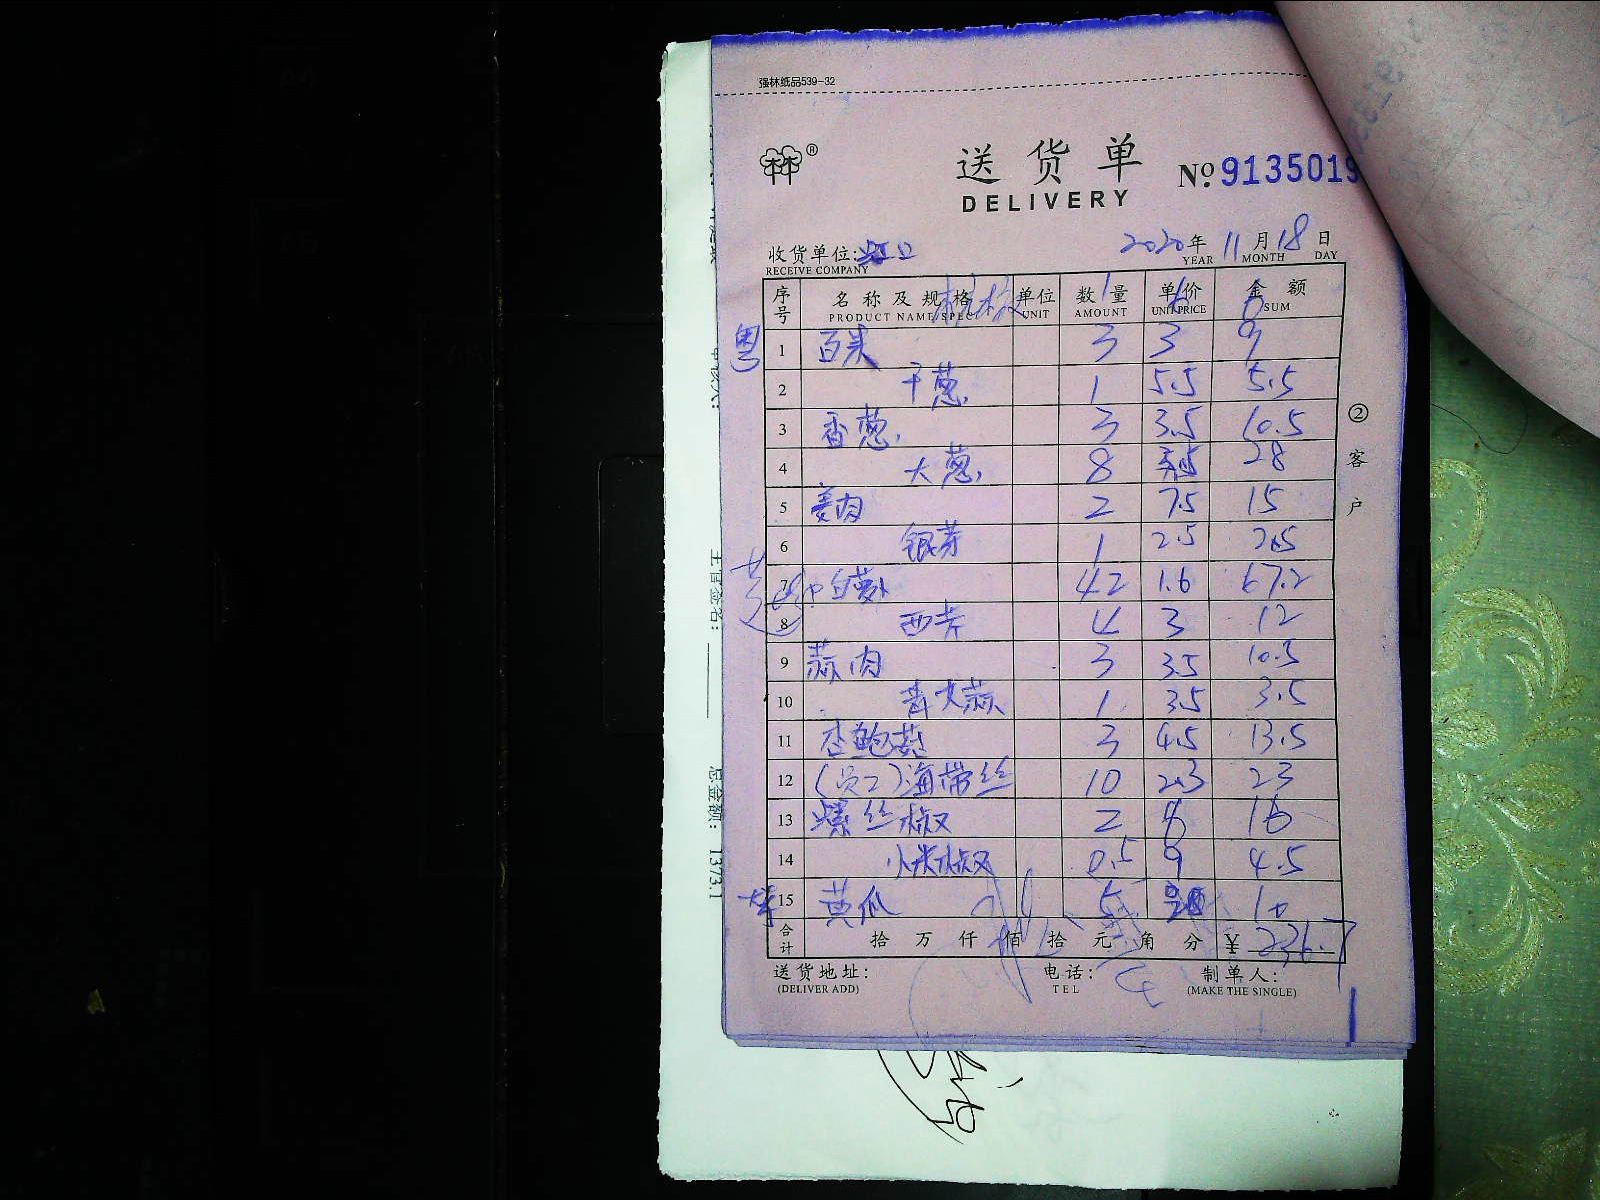 强林纸品539-32
®
送货单
DELIVERY
№ 9135019
收货单位: 虹口
RECEIVE COMPANY
2020年 11月 18日
YEAR MONTH DAY
序号 名称及规格 单位 数量 单价 金额
PRODUCT NAME/SPECI UNIT AMOUNT UNIT PRICE SUM
1 6 6
粤
1 百果 3 3 9
2 干葱 1 5.5 5.5
3 香葱 3 3.5 10.5
4 大葱 8 3.5 28
5 姜肉 2 7.5 15
6 银芽 1 2.5 2.5
7 白萝卜 42 1.6 67.2
8 西芹 4 3 12
9 蒜肉 3 3.5 10.5
10 青大蒜 1 3.5 3.5
11 杏鲍菇 3 4.5 13.5
12 (员工)海带丝 10 2.3 23
13 螺丝椒 2 8 16
14 小米椒 0.5 9 4.5
15 黄瓜 5 10
合计 拾 万 仟 佰 拾 元 角 分 ¥ 236.7
送货地址: 电话: 制单人:
(DELIVER ADD) TEL (MAKE THE SINGLE)
② 客户
主管签名:
总金额: 1373.1